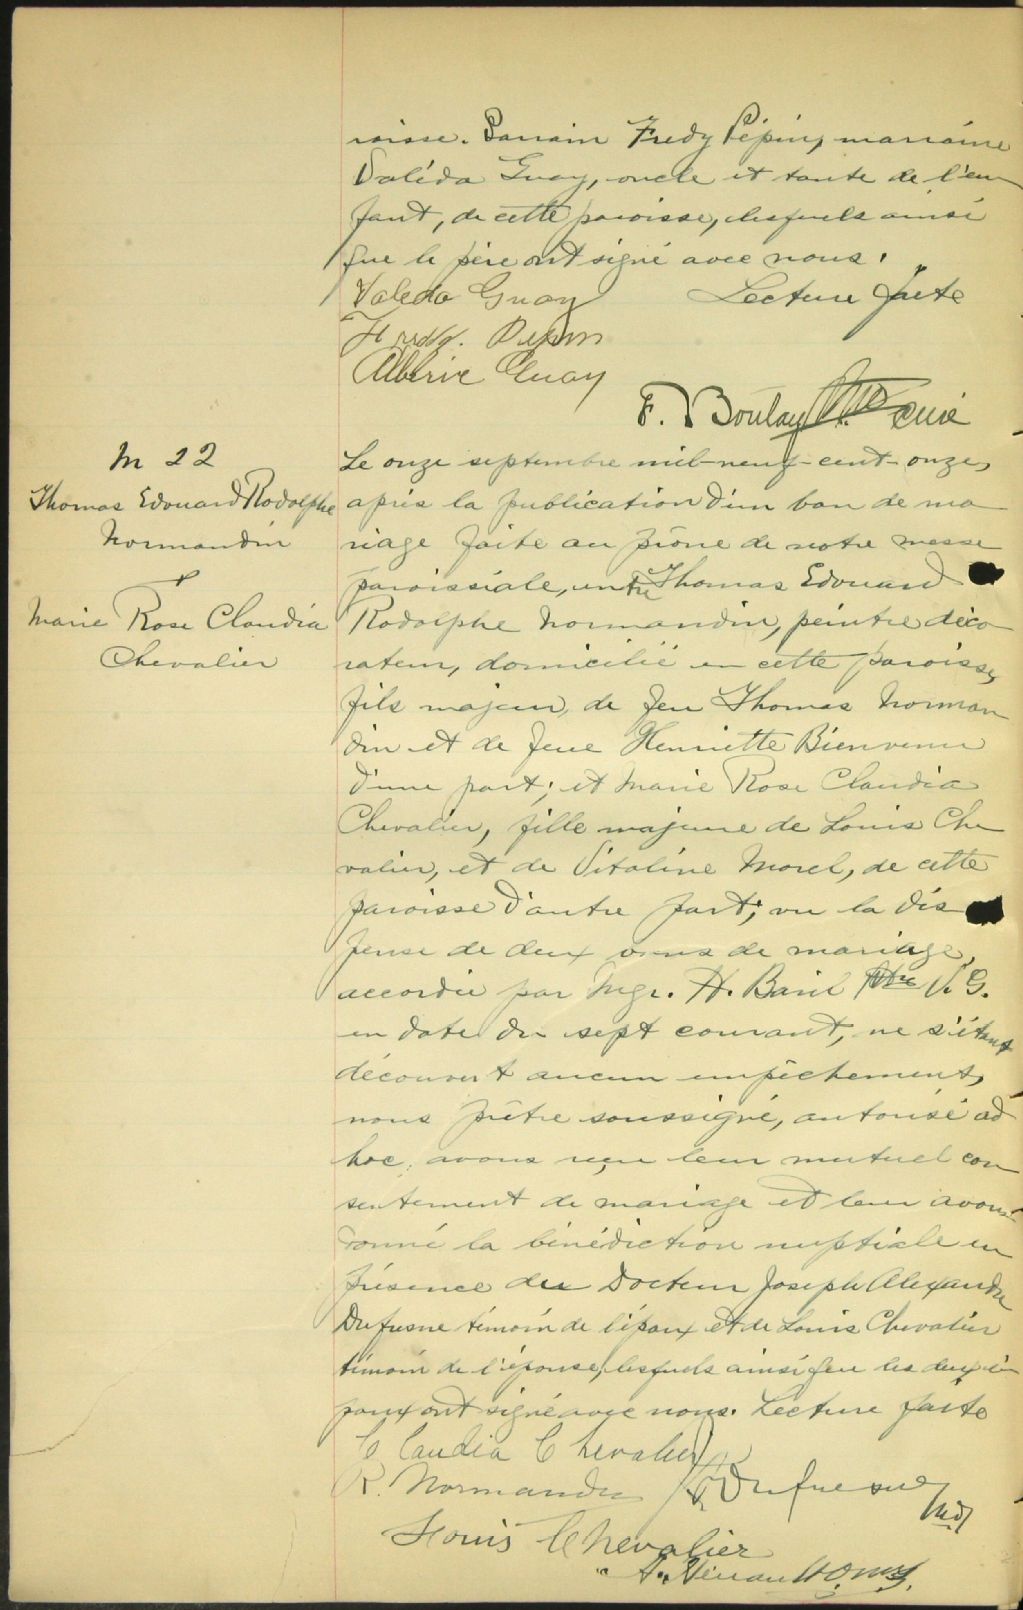 roisse. Parrain Fredy Pépin, marraine
Valéda Guay, oncle et tante de l'en
fant, de cette paroisse, lesquels ainsi
que le père ont signé avec nous.
Valeda Guay Lecture faite
Fredy. Pepin
Albéric Guay
F. Boulay Ptre curé
M 22
Thomas Edouard Rodolphe
Normandin
et
Marie Rose Claudia
Chevalier
Le onze septembre mil-neuf-cent-onze,
après la publication d'un ban de ma
riage faite au prône de notre messe
paroissiale, entre Thomas Edouard
Rodolphe Normandin, peintre déco
rateur, domicilié en cette paroisse,
fils majeur, de feu Thomas Norman
din et de feue Henriette Bienvenu
d'une part; et Marie Rose Claudia
Chevalier, fille majeure de Louis Che
valier, et de Vitaline Morel, de cette
paroisse d'autre part; vu la dis
pense de deux bans de mariage,
accordée par Mgr. H. Baril Ptre V. G.
en date du sept courant, ne s'étant
découvert aucun empêchement,
nous prêtre soussigné, autorisé ad
hoc, avons reçu leur mutuel con
sentement de mariage et leur avons
donné la bénédiction nuptiale en
présence du Docteur Joseph Alexandre
Dufresne témoin de l'époux et de Louis Chevalier
témoin de l'épouse, lesquels ainsi que les deux é
poux ont signé avec nous. Lecture faite
Claudia Chevalier
R. Normandin Dufresne
Md
Louis Chevalier